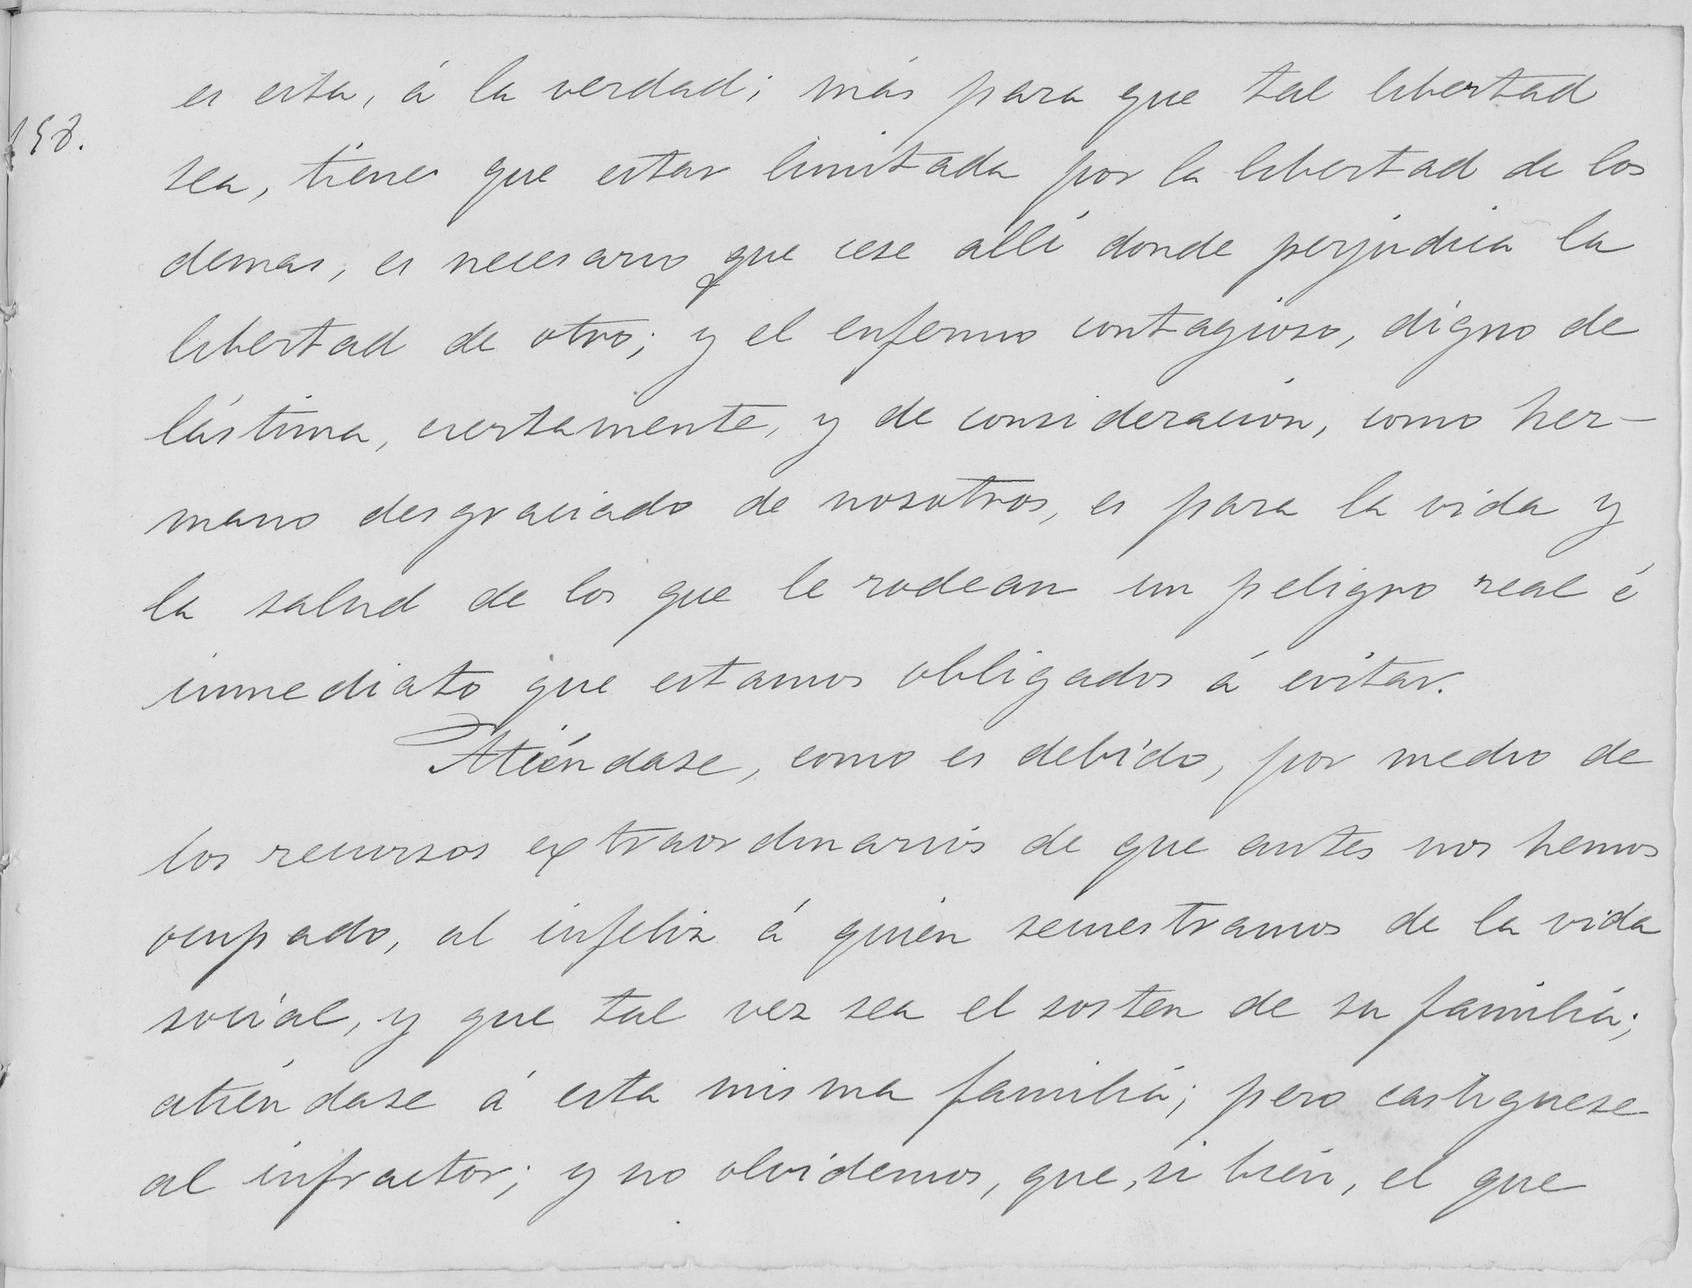 es esta, á la verdad; más para que tal libertad
158.
sea, tiene que estar limitada por la libertad de los
demas, es necesario que cese allí donde perjudica la
libertad de otro; y el enfermo contagioso, digno de
lástima, ciertamente, y de consideración, como her-
mano desgraciado de nosotros, es para la vida y
la salud de los que le rodean un peligro real é
inmediato que estamos obligados á evitar.
Atiéndase, como es debido, por medio de
los recursos extraordinarios de que antes nos hemos
ocupado, al infeliz á quien secuestramos de la vida
social, y que tal vez sea el sosten de su familia;
atiéndase á esta misma familia; pero castiguese
al infractor; y no olvidemos, que, si bien, el que